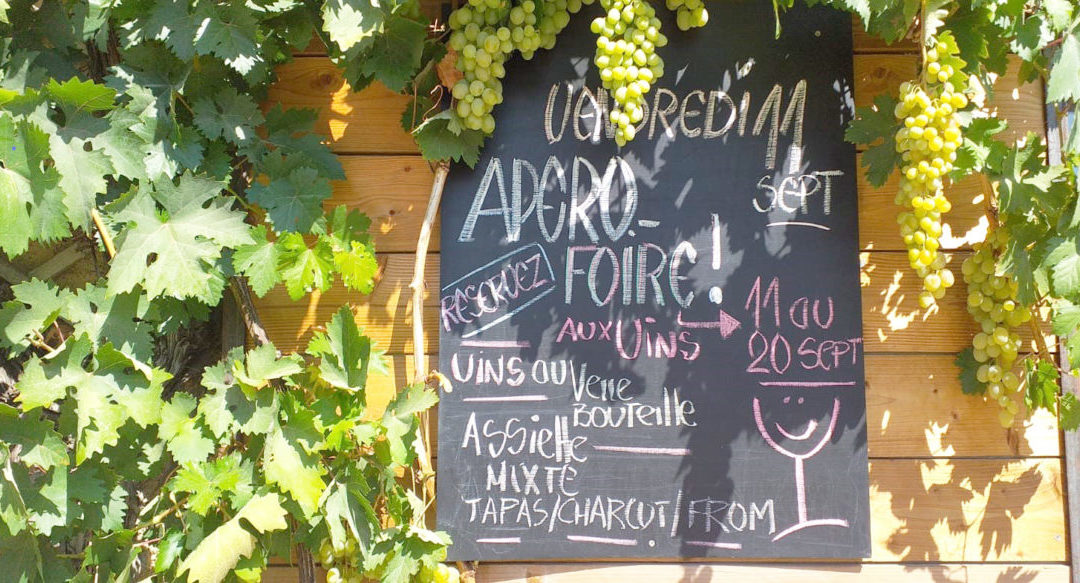 VENDREDI 11
SEPT
APERO_
FOIRE!
RESERVEZ
AUX VINS
11 au
20 SEPT
VINS OU Verre
Bouteille
Assiette
MIXTE
TAPAS/CHARCUT/FROM